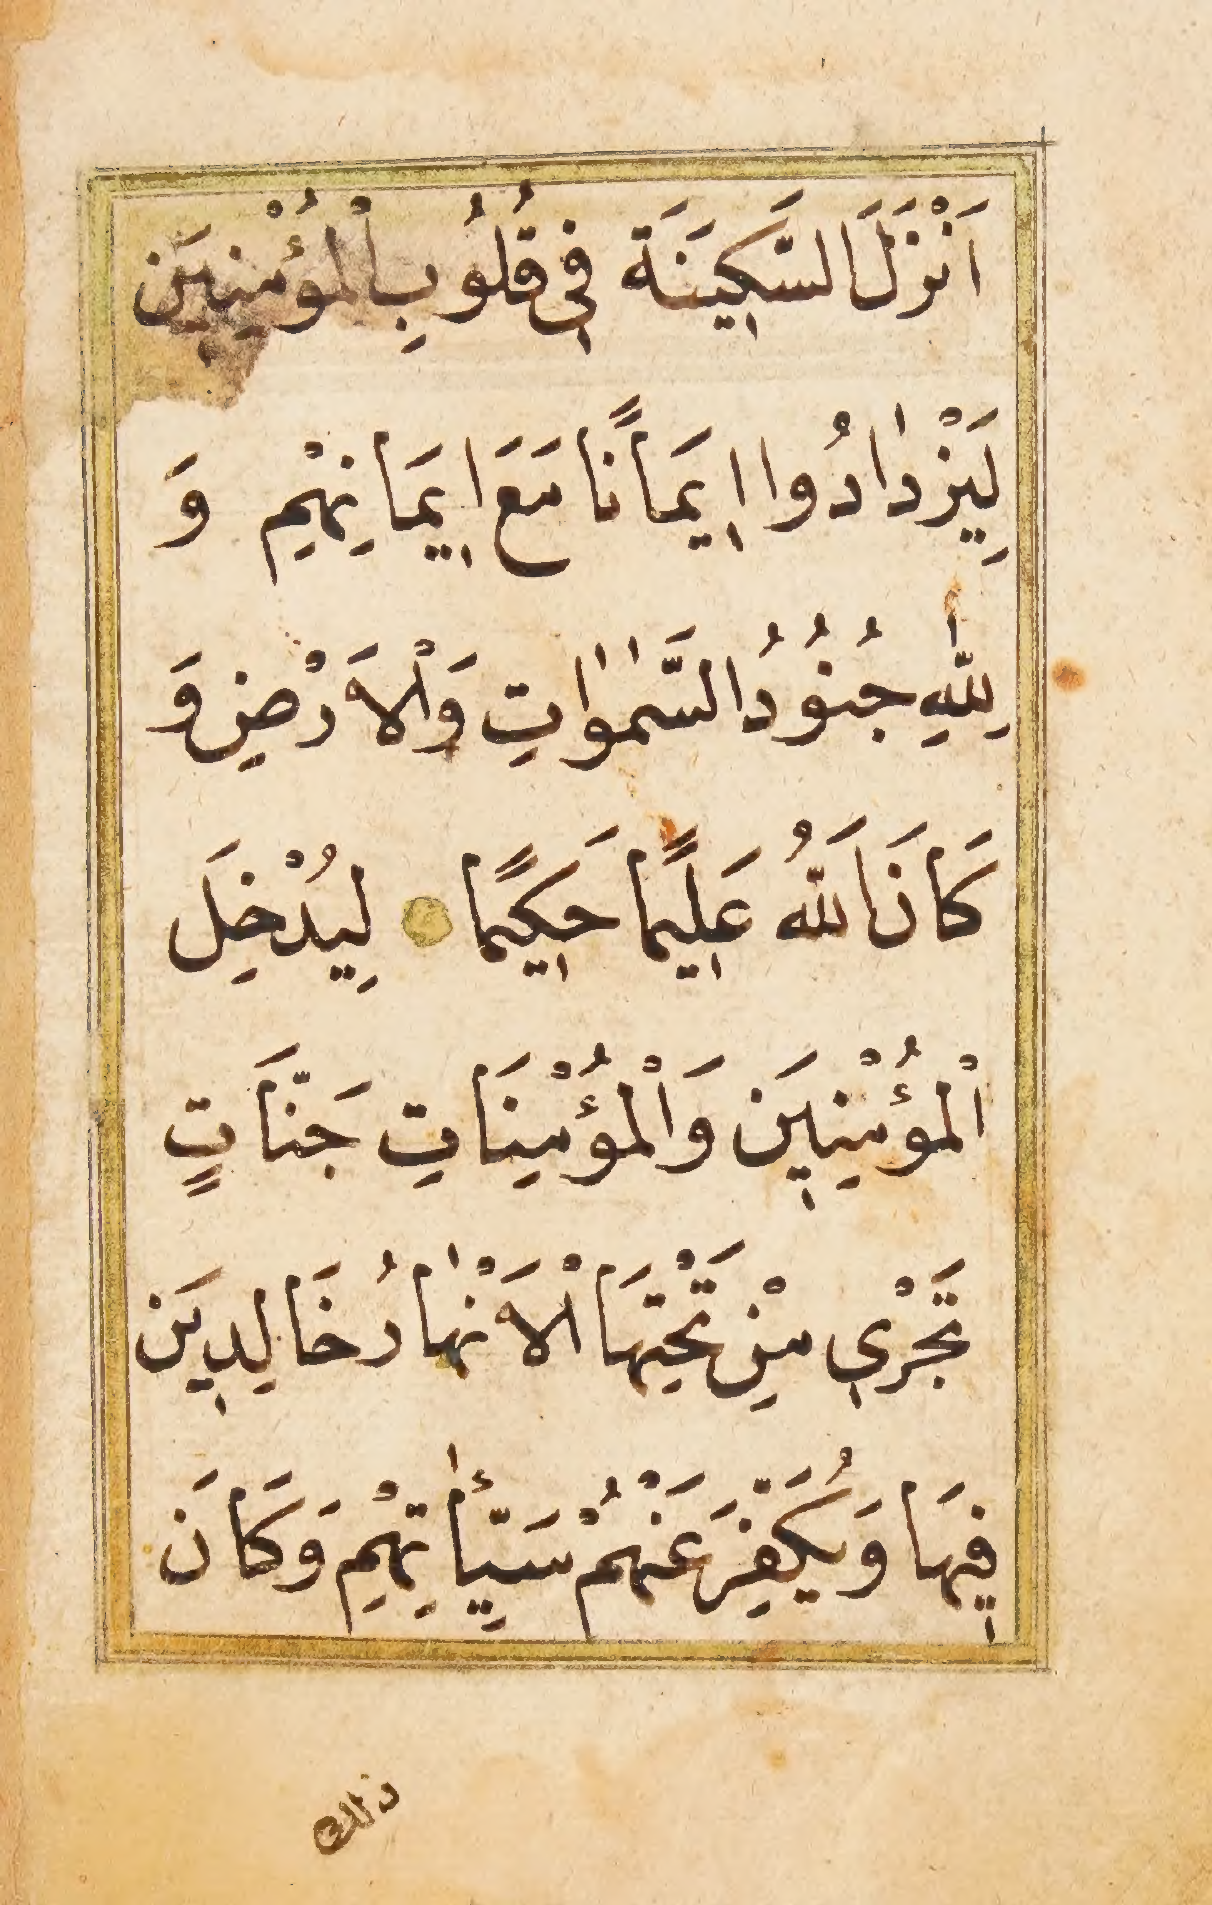 اَنْزَلَ السَّكٖينَةَ فٖى قُلُوبِ الْمُؤْمِنٖينَ
لِيَزْدٰادُوا اٖيمَانًا مَعَ اٖيمَانِهِمْ وَ
لِلّٰهِ جُنُودُ السَّمٰوٰاتِ وَالْاَرْضِ وَ
كَانَ اَللهُ عَلٖيمًا حَكٖيمًا لِيُدْخِلَ
الْمُؤْمِنٖينَ وَالْمُؤْمِنَاتِ جَنَّاتٍ
تَجْرٖى مِنْ تَحْتِهَا الْاَنْهٰارُ خَالِدٖينَ
فٖيهَا وَيُكَفِّرَ عَنْهُمْ سَيِّأٰتِهِمْ وَكَانَ
ذلك